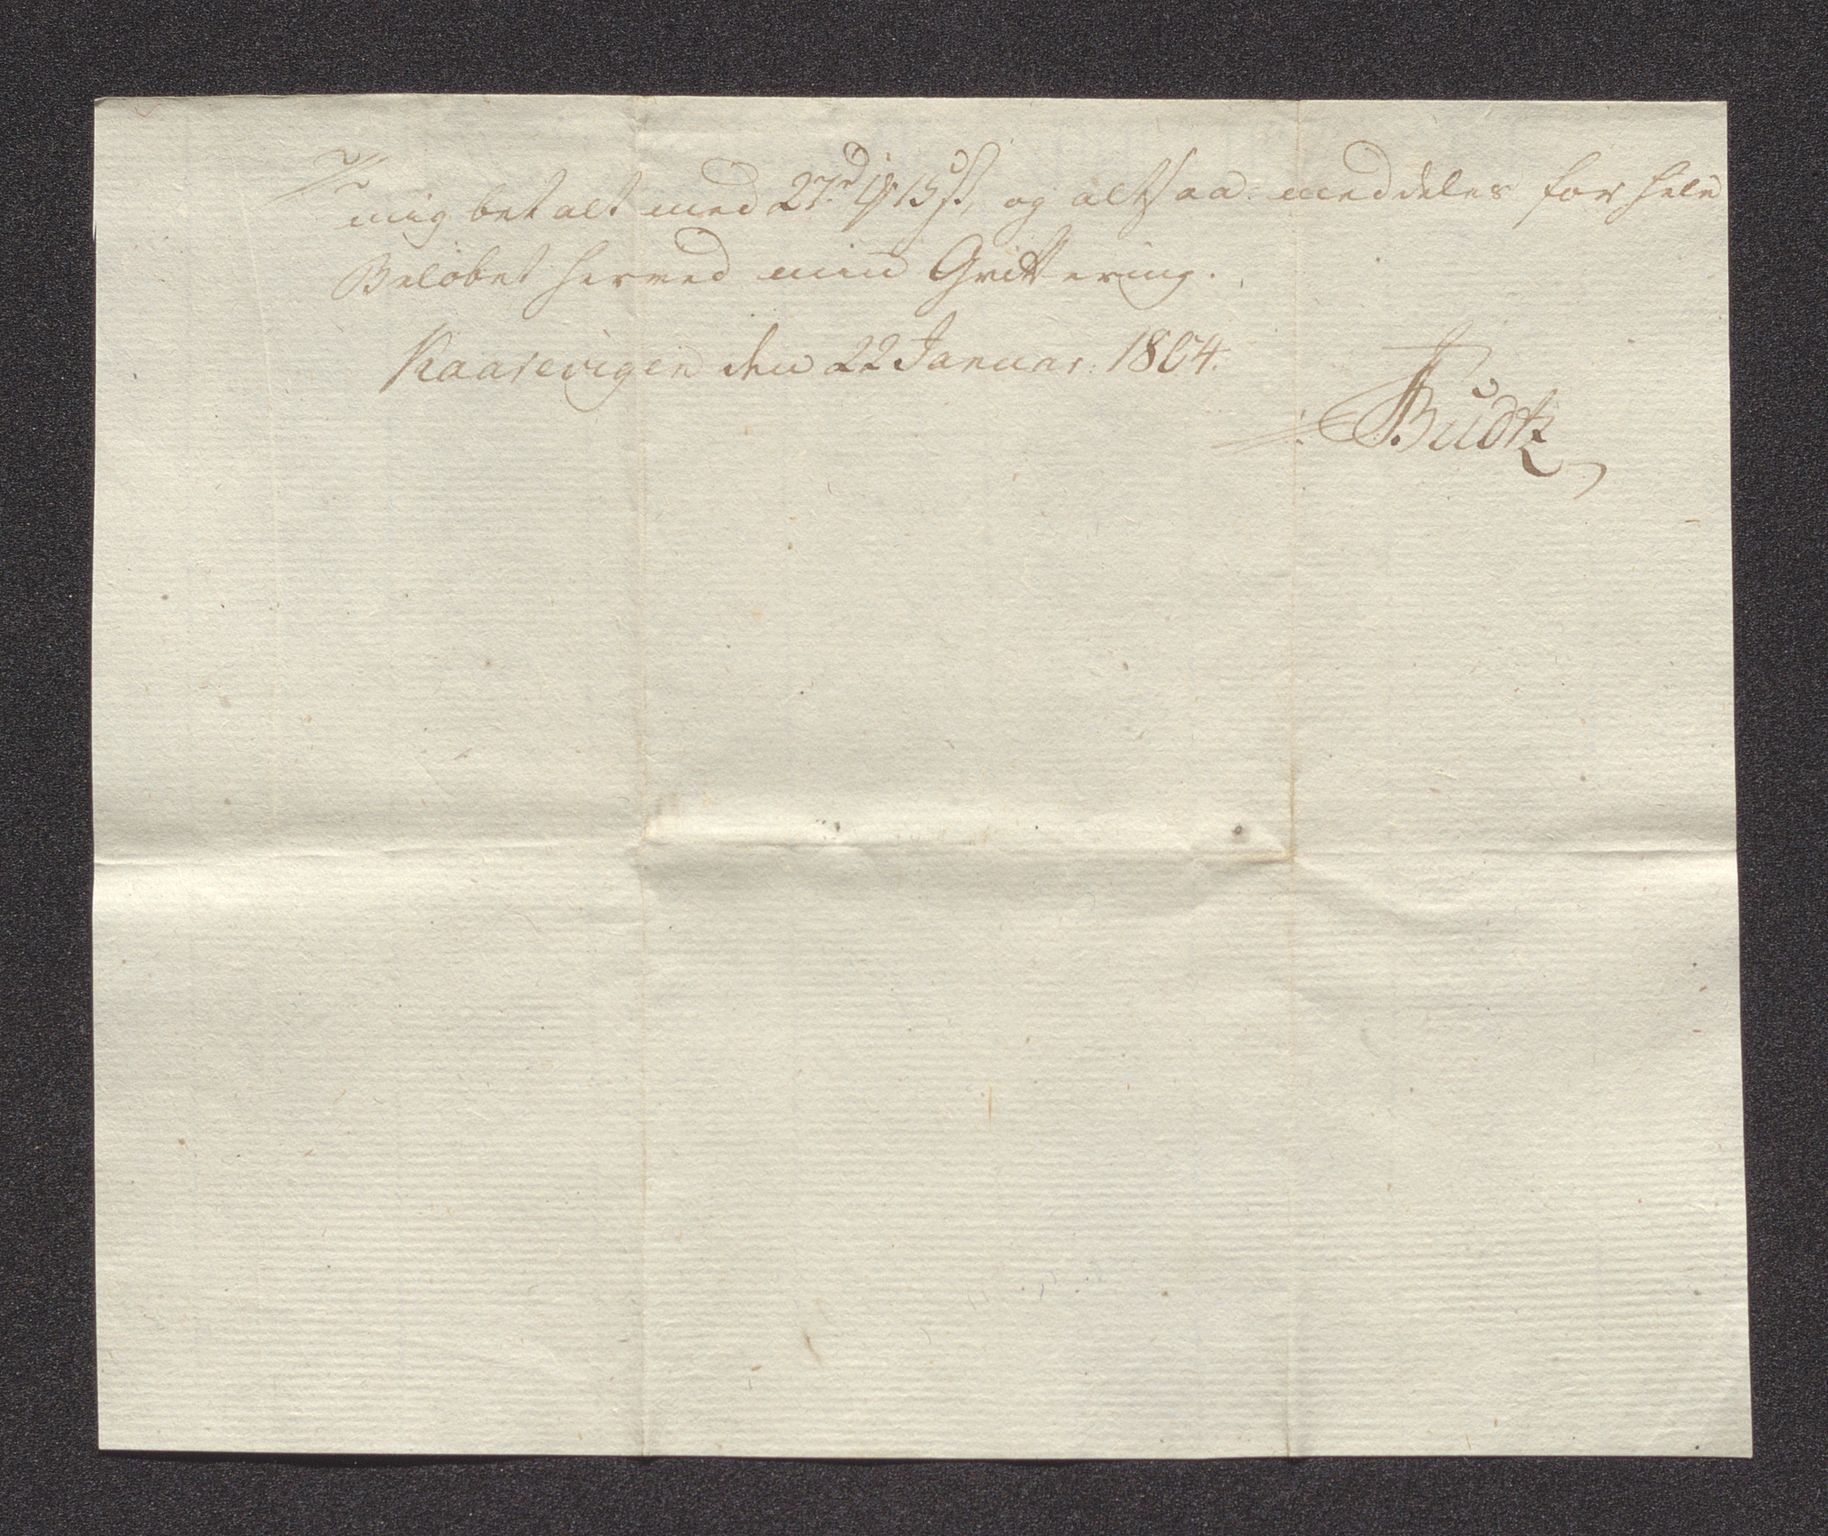 mig betalt med 27rd 1 ₰ 15 ß, og altsaa meddeles for hele
Beløbet herved min Qvittering.
Kaarevigen den 22 Januar: 1804.
Budtz